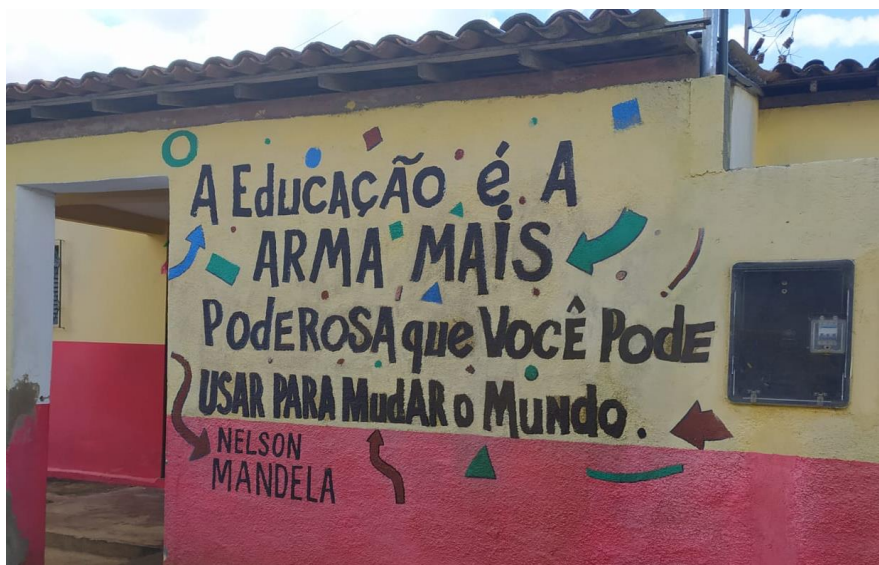 A EducAÇÃO é A
ARMA MAiS
PodEROSA que VOCÊ PodE
USAR PARA MudAR o MuNdo.
NELSON
MANDELA